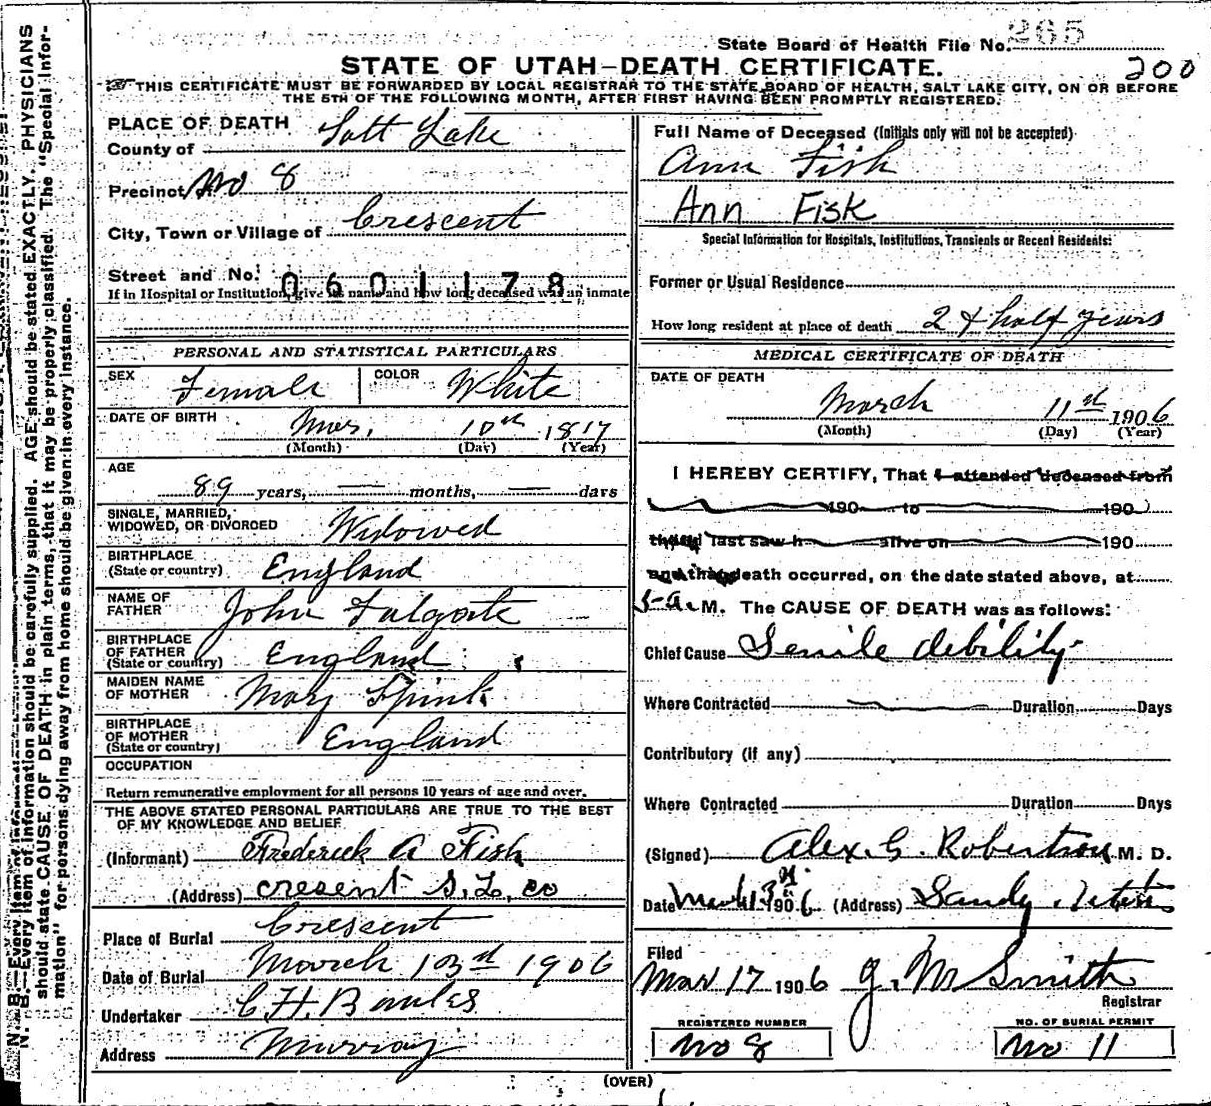 State Board of Health File No. 265
200
STATE OF UTAH-DEATH CERTIFICATE.
THIS CERTIFICATE MUST BE FORWARDED BY LOCAL REGISTRAR TO THE STATE BOARD OF HEALTH, SALT LAKE CITY, ON OR BEFORE
THE 5TH OF THE FOLLOWING MONTH, AFTER FIRST HAVING BEEN PROMPTLY REGISTERED.
N. B.—Every item of information should be carefully supplied. AGE should be stated EXACTLY. PHYSICIANS
should state CAUSE OF DEATH in plain terms, that it may be properly classified. The "Special Infor-
mation" for persons dying away from home should be given in every instance.
PLACE OF DEATH
County of Salt Lake
Precinct No 8
City, Town or Village of Crescent
Street and No.
0601178
If in Hospital or Institution, give its name and how long deceased was an inmate
PERSONAL AND STATISTICAL PARTICULARS
SEX Female COLOR White
DATE OF BIRTH Mar. 10th 1817
(Month) (Day) (Year)
AGE
89 years, — months, — days
SINGLE, MARRIED,
WIDOWED, OR DIVORCED Widowed
BIRTHPLACE
(State or country) England
NAME OF
FATHER John Fulgate
BIRTHPLACE
OF FATHER
(State or country) England
MAIDEN NAME
OF MOTHER Mary Spink
BIRTHPLACE
OF MOTHER
(State or country) England
OCCUPATION
Return remunerative employment for all persons 10 years of age and over.
THE ABOVE STATED PERSONAL PARTICULARS ARE TRUE TO THE BEST
OF MY KNOWLEDGE AND BELIEF
(Informant) Frederick A Fish
(Address) cresent S. L. co
Place of Burial Crescent
Date of Burial March 13rd 1906
Undertaker C. H.
Address Murray
Full Name of Deceased (Initials only will not be accepted)
Ann Fish
Ann Fisk
Special Information for Hospitals, Institutions, Transients or Recent Residents:
Former or Usual Residence
How long resident at place of death 2 & half years
MEDICAL CERTIFICATE OF DEATH
DATE OF DEATH
March 11st 1906
(Month) (Day) (Year)
I HEREBY CERTIFY, That I attended deceased from
190 to 190
last saw h alive on 190
and that death occurred, on the date stated above, at
5 a. M. The CAUSE OF DEATH was as follows:
Chief Cause Senile debility
Where Contracted Duration Days
Contributory (if any)
Where Contracted Duration Days
(Signed) Alex. G. Robertson M. D.
Date 1906 (Address) Sandy
Filed
Mar 17 1906 J. M Smith
Registrar
REGISTERED NUMBER
No 8
NO. OF BURIAL PERMIT
No 11
(OVER)